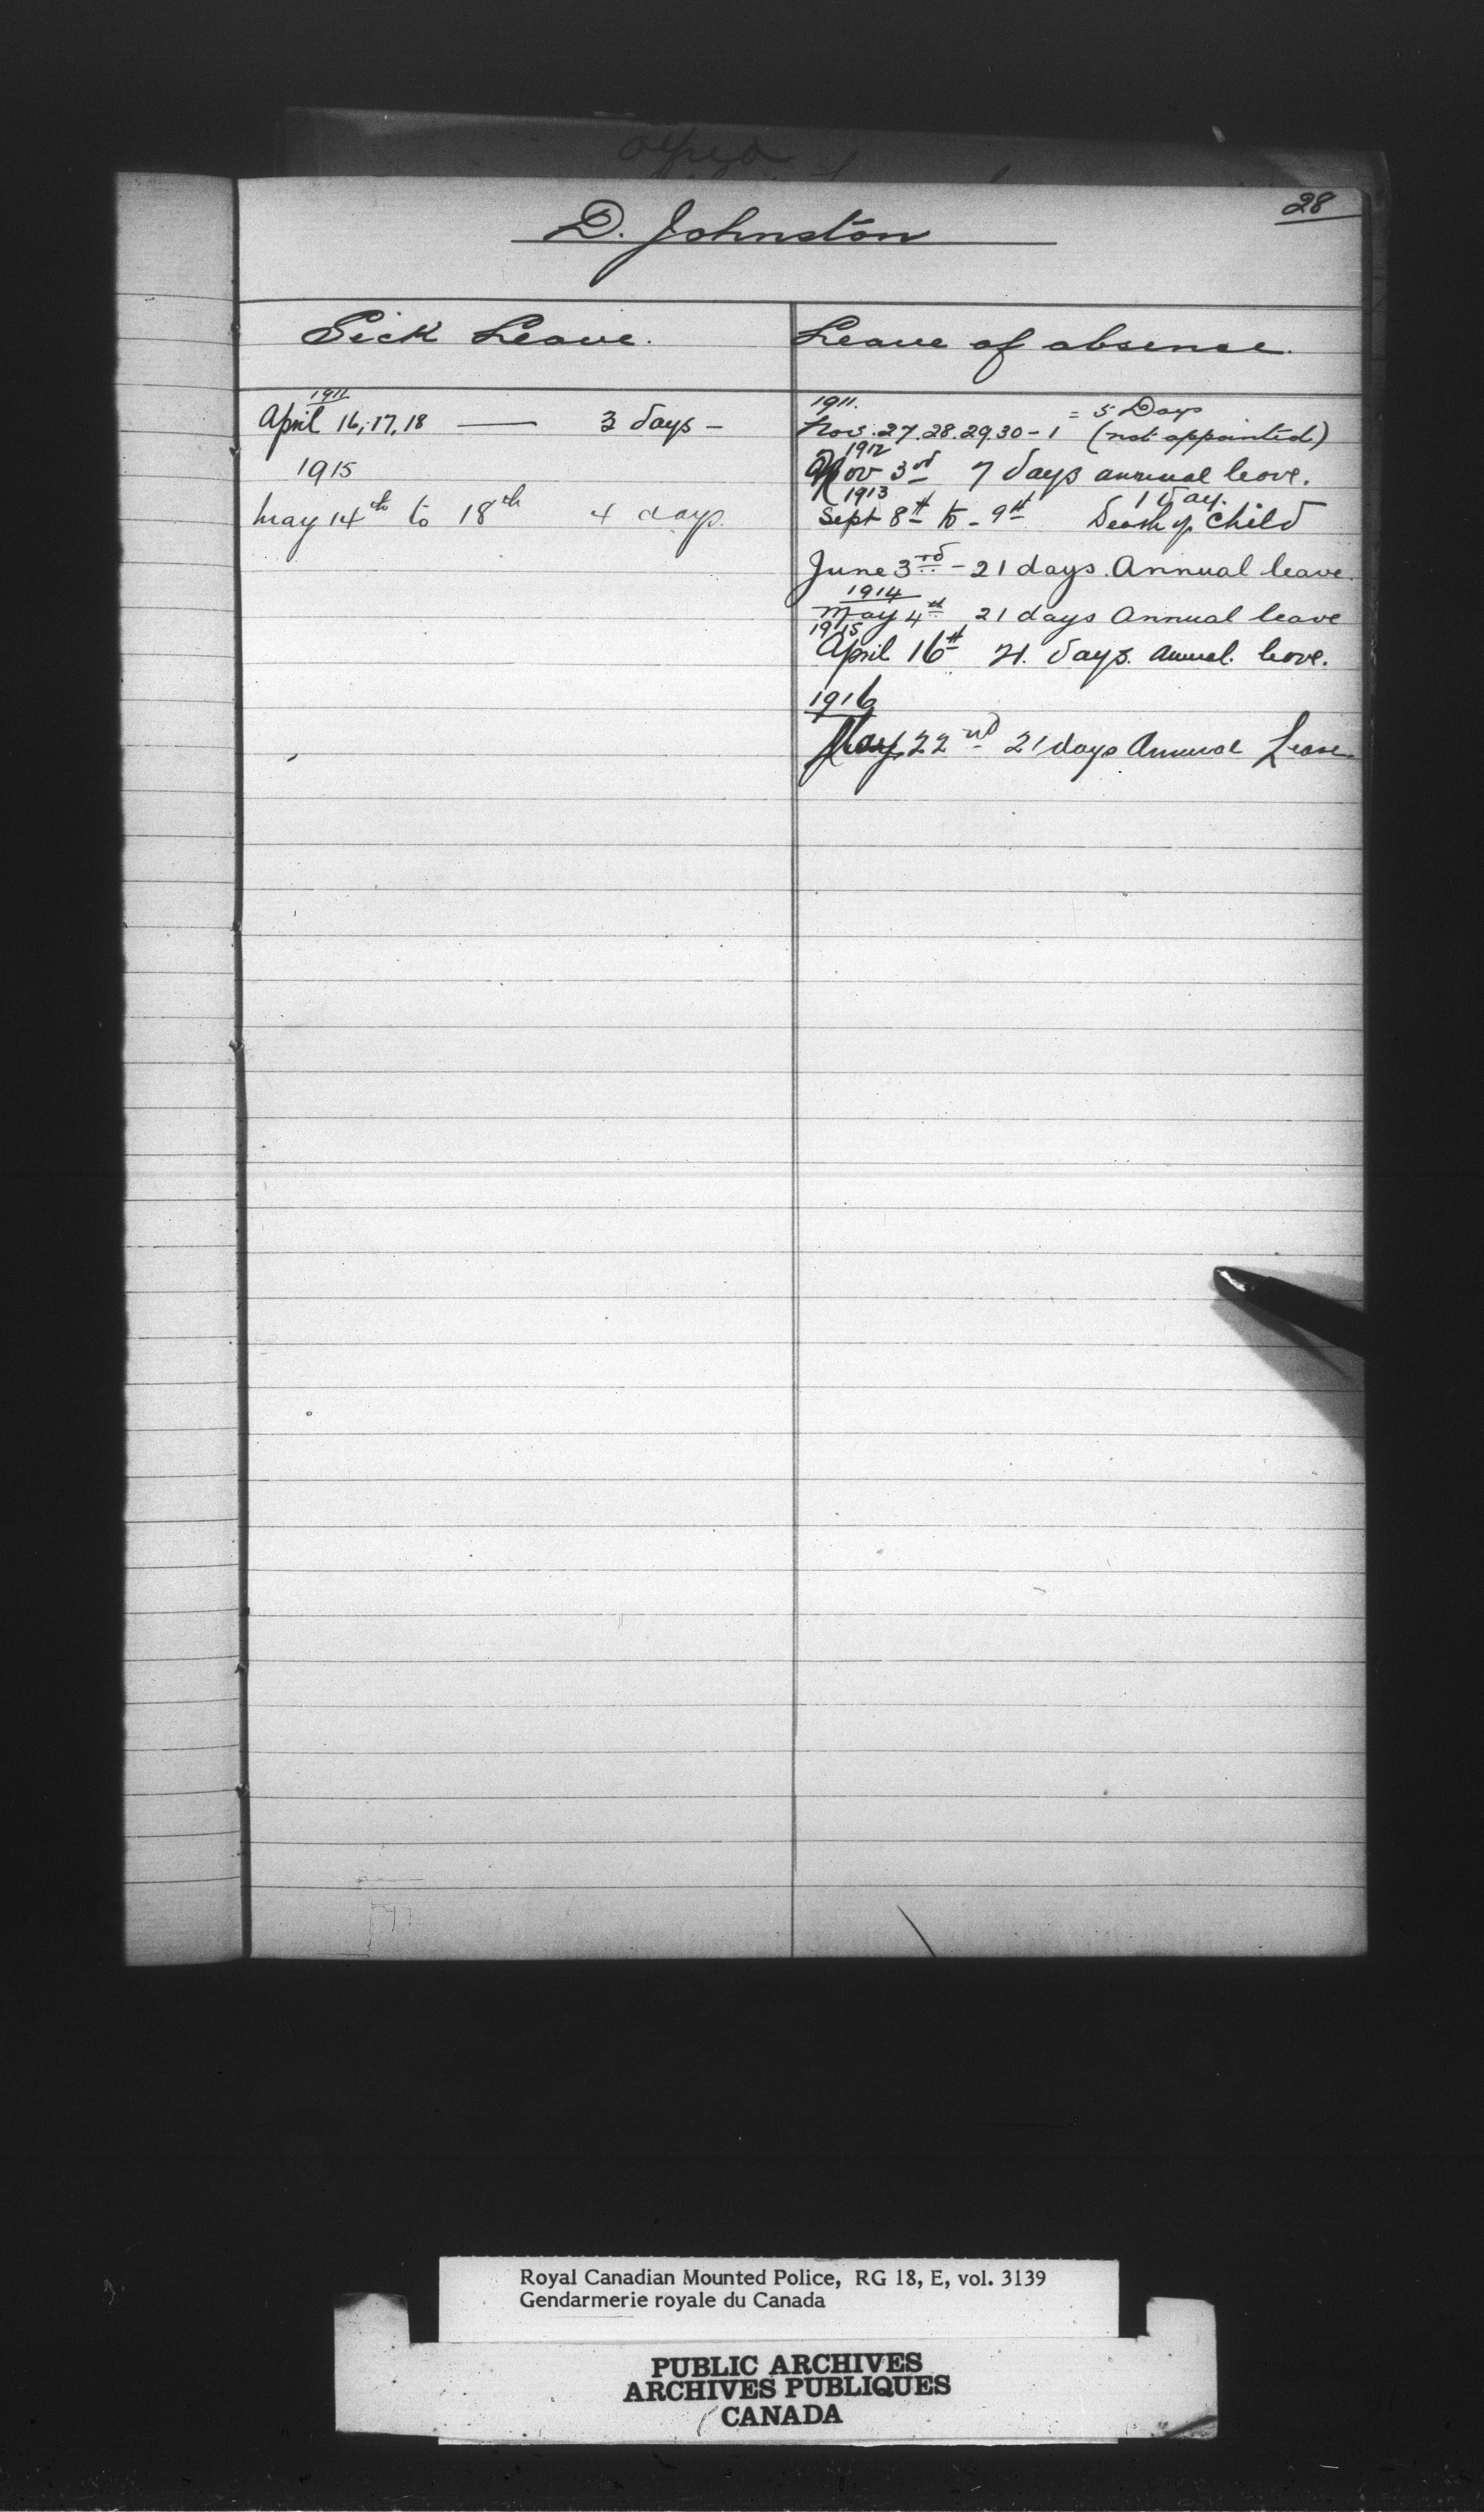 28
D. Johnston
Sick Leave.
Leave of absence.
April 16, 17, 18 — 3 days –
1915
May 14th to 18th 4 days.
1911.
= 5 Days
Nov. 27. 28. 29. 30 – 1 (not appointed)
1912
Nov 3rd 7 days annual leave.
1913
1 day.
Sept 8th to – 9th Death of Child
June 3rd – 21 days. Annual leave.
1914
May 4th 21 days Annual leave
1915
April 16th 21. days. annual. leave.
1916
May 22nd 21 days Annual Leave.
Royal Canadian Mounted Police, RG 18, E, vol. 3139
Gendarmerie royale du Canada
PUBLIC ARCHIVES
ARCHIVES PUBLIQUES
CANADA